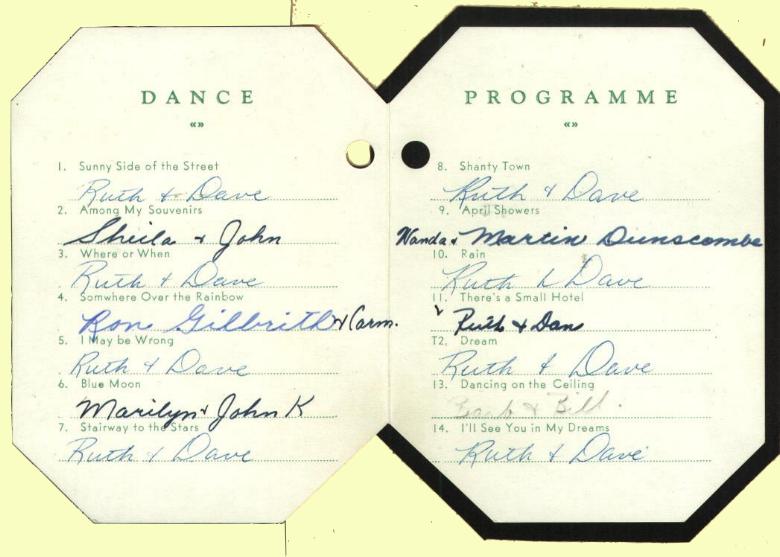 DANCE
«»
1. Sunny Side of the Street
Ruth & Dave
2. Among My Souvenirs
Sheila & John
3. Where or When
Ruth & Dave
4. Somwhere Over the Rainbow
Ron Gilbrith & Carm.
5. I May be Wrong
Ruth & Dave
6. Blue Moon
Marilyn & John K
7. Stairway to the Stars
Ruth & Dave
PROGRAMME
«»
8. Shanty Town
Ruth & Dave
9. April Showers
Wanda & Martin Dunscombe
10. Rain
Ruth & Dave
11. There's a Small Hotel
Ruth & Dan
T2. Dream
Ruth & Dave
13. Dancing on the Ceiling
Barb & Bill.
14. I'll See You in My Dreams
Ruth & Dave